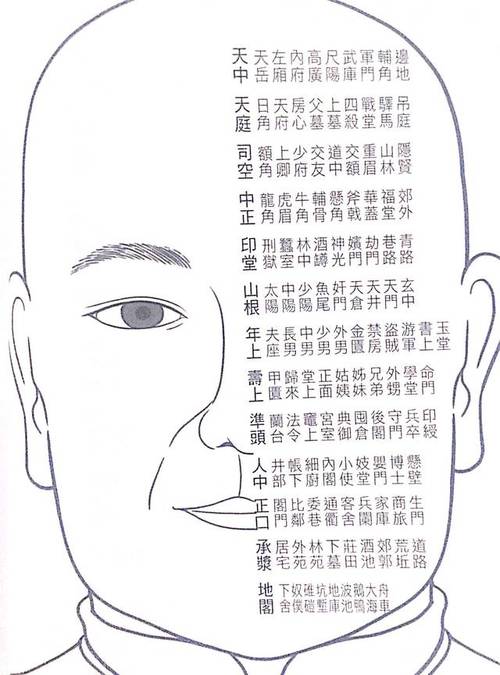 天中 天岳 左廂 內府 高廣 尺陽 武庫 軍門 輔角 邊地
天庭 日角 天府 房心 父墓 上墓 四殺 戰堂 驛馬 吊庭
司空 額角 上卿 少府 交友 道中 交額 重眉 山林 隱賢
中正 龍角 虎眉 牛角 輔骨 懸角 斧戟 華蓋 福堂 郊外
印堂 刑獄 蠶室 林中 酒罇 神光 嬪門 劫門 巷路 青路
山根 太陽 中陽 少陽 魚尾 奸門 天倉 天井 天門 玄中
年上 夫座 長男 中男 少男 外男 金匱 禁房 盜賊 游軍 書上 玉堂
壽上 甲匱 歸來 堂上 正面 姑姨 姊妹 兄弟 外甥 學堂 命門
準頭 蘭台 法令 竈上 宮室 典御 囤倉 後閣 守門 兵卒 印綬
人中 井部 帳下 細廚 內閣 小使 妓堂 嬰門 博士 懸壁
正口 閣門 比鄰 委巷 通衢 客舍 兵闌 家庫 商旅 生門
承漿 居宅 外苑 林苑 下墓 莊田 酒池 郊郭 荒坵 道路
地閣 下舍 奴僕 碓磑 坑塹 地庫 波池 鵝鴨 大海 舟車